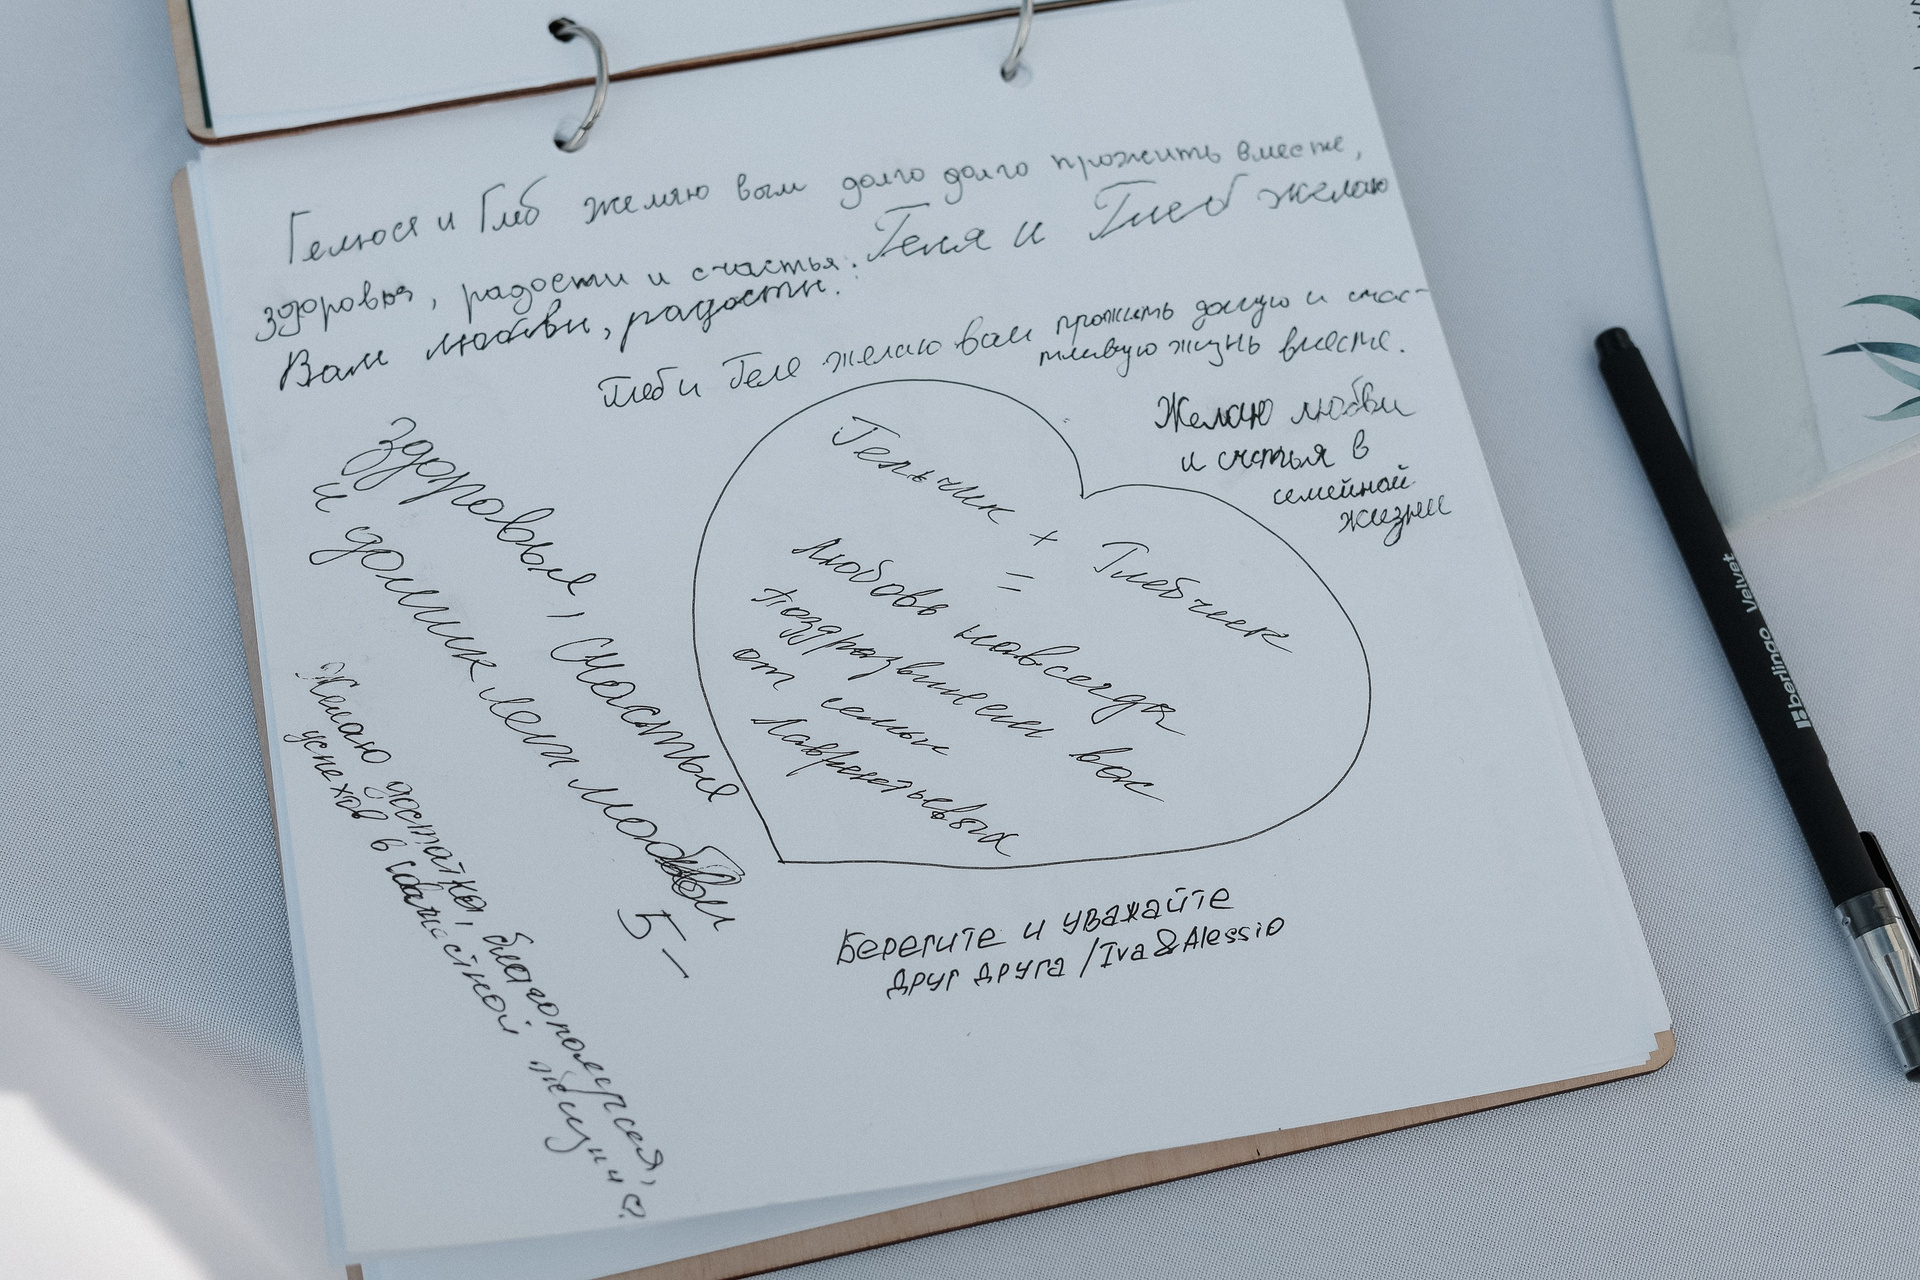 Гелюся и Глеб желяю вам долго долго прожить вместе,
здоровья, радости и счастья.
Геля и Глеб желаю
Вам любви, радости.
Глеб и Геле желаю вам прожить долгую и счас-
тливую жизнь вместе.
Желаю любви
и счстья в
семейной
жизни
Гельчик + Глебчик
=
Любовь навсегда
Поздравляем вас
от семьи
Лаврентьевых
Здоровья, счастья
и долгих лет любви
Желаю достатка, благополучия,
успехов в совместной жизни
Берегите и уважайте
друг друга /Iva&Alessio
berlingo Velvet